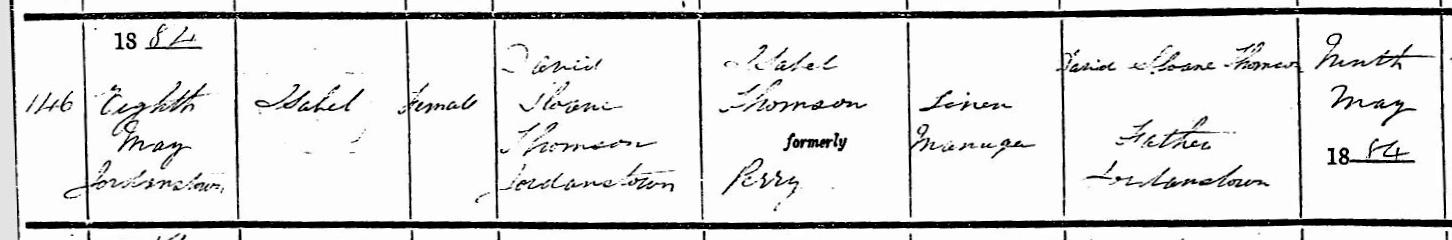 146
1884
Eighth
May
Jordanstown
Isabel
Female
David
Sloane
Thomson
Jordanstown
Isabel
Thomson
formerly
Perry
Linen
Manager
David Sloane Thomson
Father
Jordanstown
Ninth
May
1884